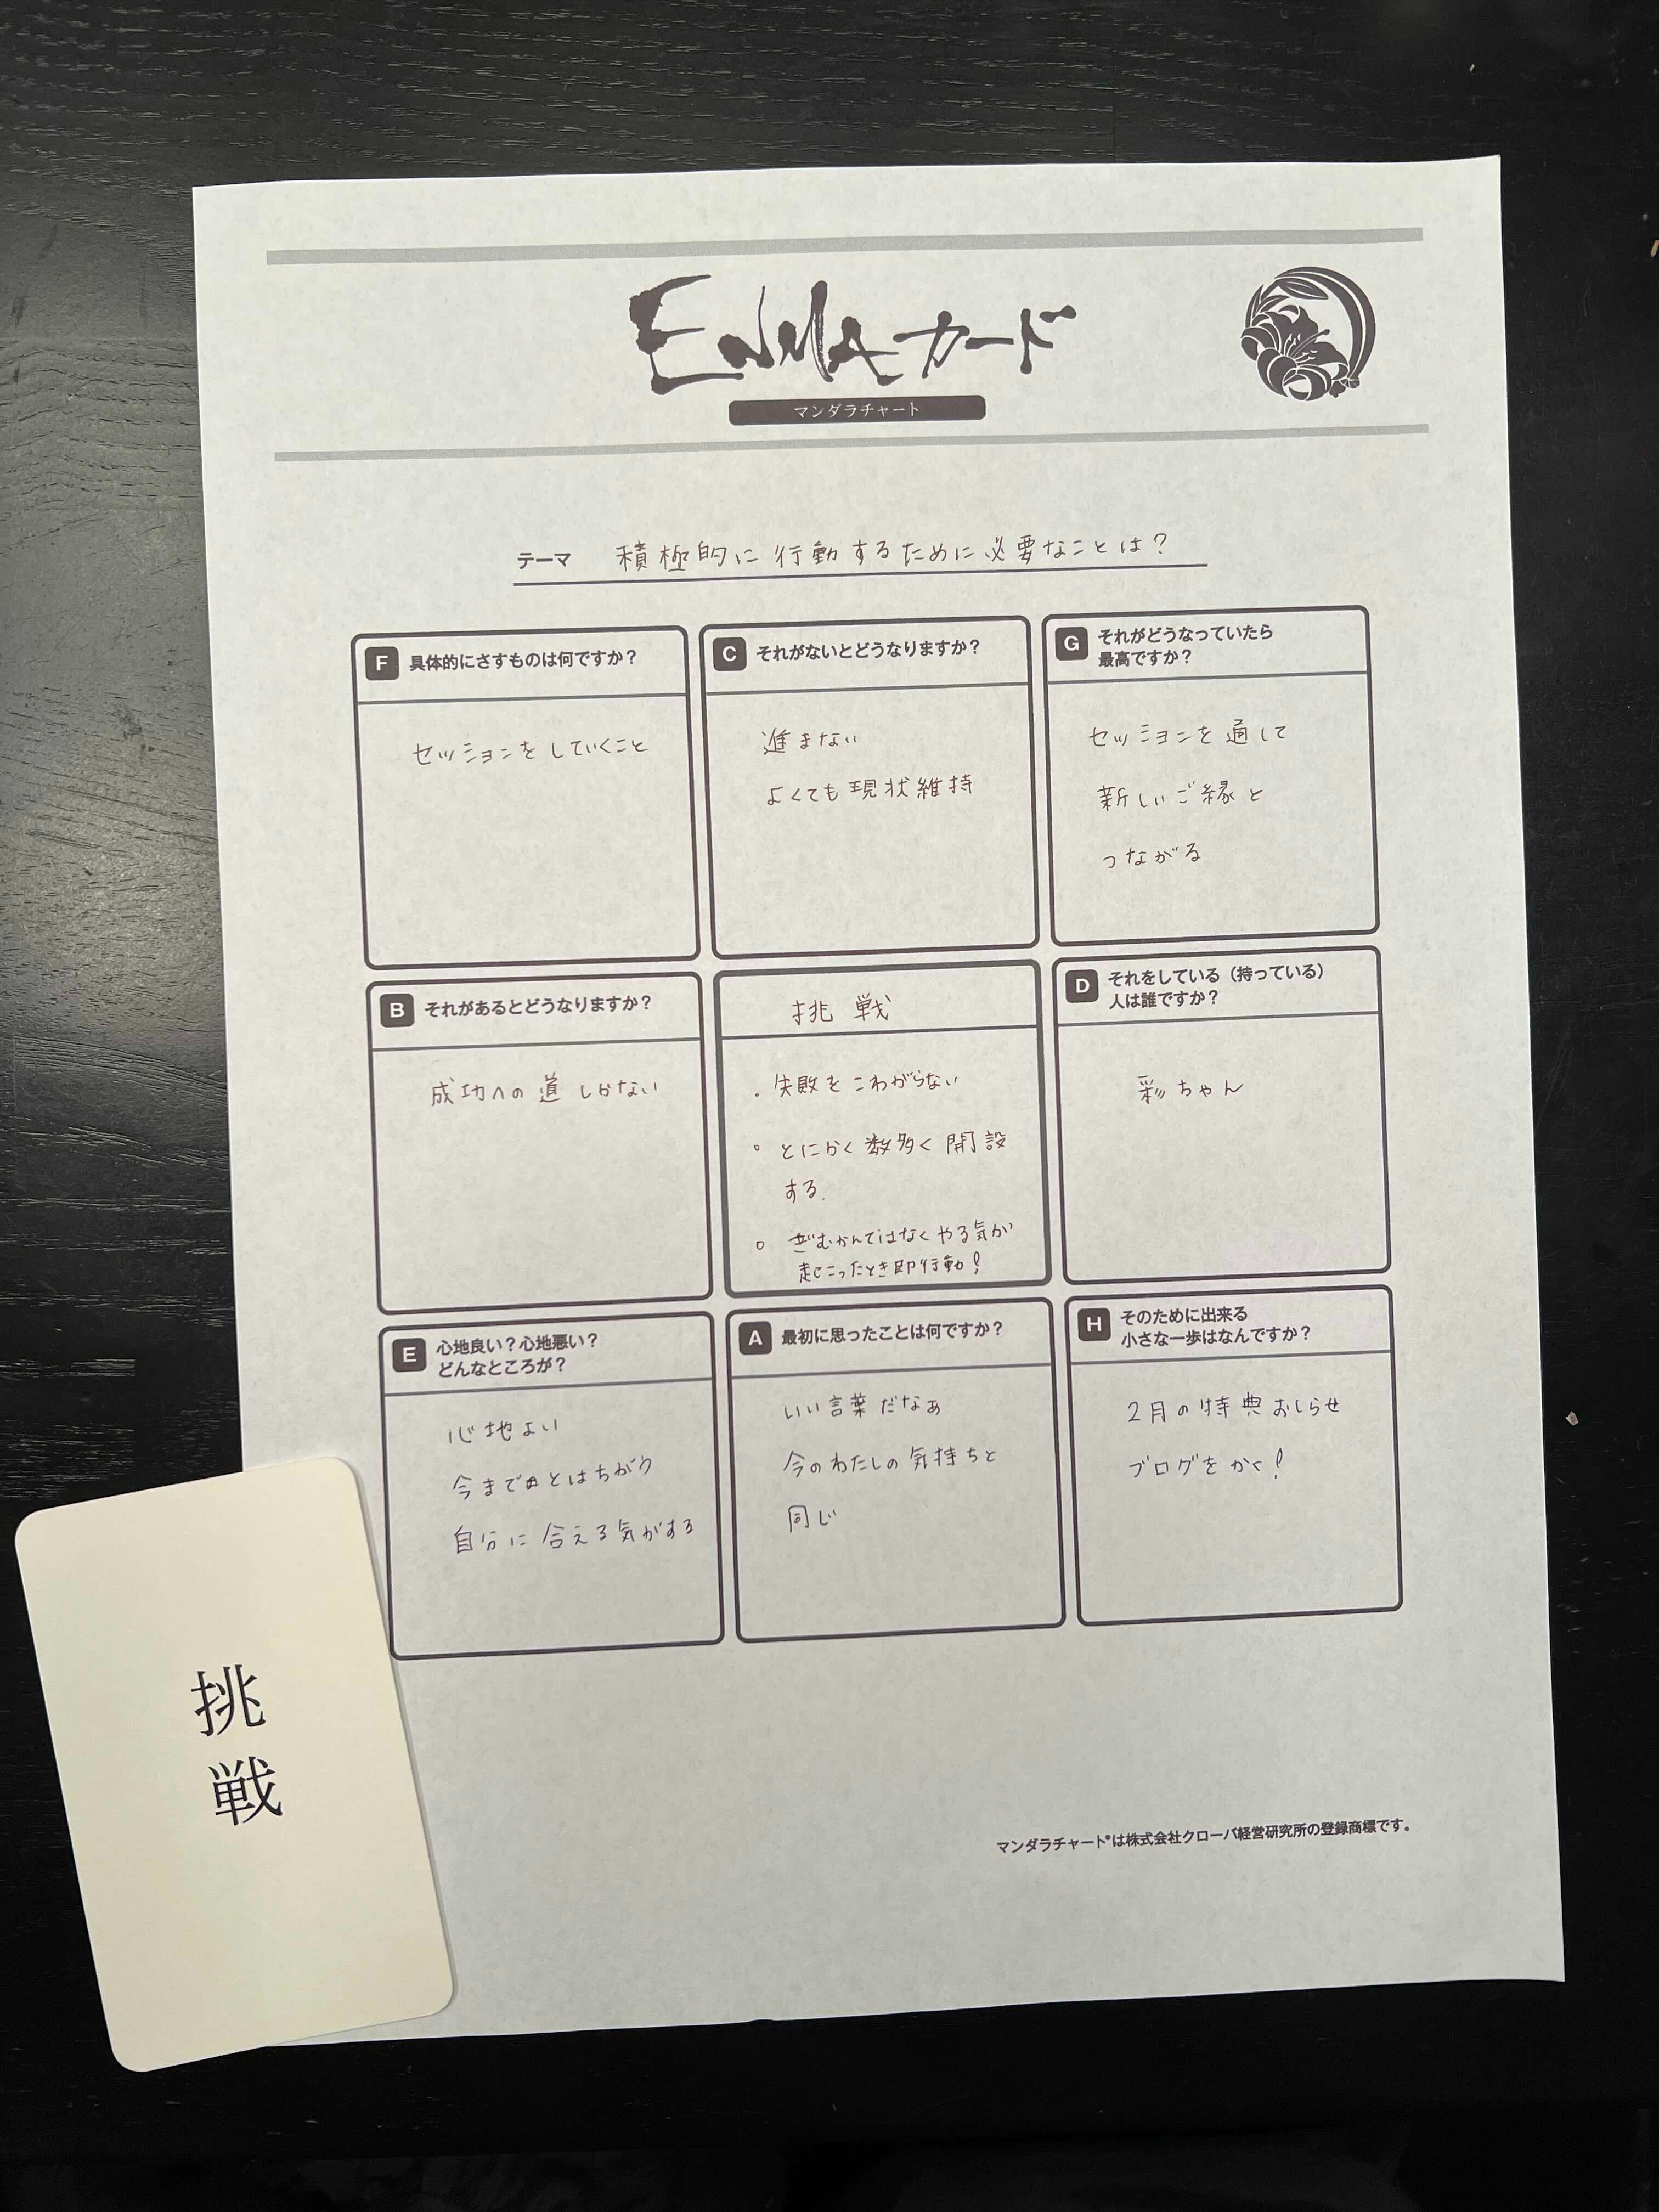 ENMAカード
マンダラチャート
テーマ 積極的に行動するために必要なことは？
F 具体的にさすものは何ですか？
セッションをしていくこと
C それがないとどうなりますか？
進まない
よくても現状維持
G それがどうなっていたら
最高ですか？
セッションを通して
新しいご縁と
つながる
B それがあるとどうなりますか？
成功への道しかない
挑戦
・失敗をこわがらない
○ とにかく数多く開設
する.
○ ぎむかんではなくやる気が
起こったとき即行動！
D それをしている（持っている）
人は誰ですか？
彩ちゃん
E 心地良い？心地悪い？
どんなところが？
心地よい
今までとはちがう
自分に合える気がする
A 最初に思ったことは何ですか？
いい言葉だなぁ
今のわたしの気持ちと
同じ
H そのために出来る
小さな一歩はなんですか？
2月の特典おしらせ
ブログをかく！
挑戦
マンダラチャート®は株式会社クローバ経営研究所の登録商標です。